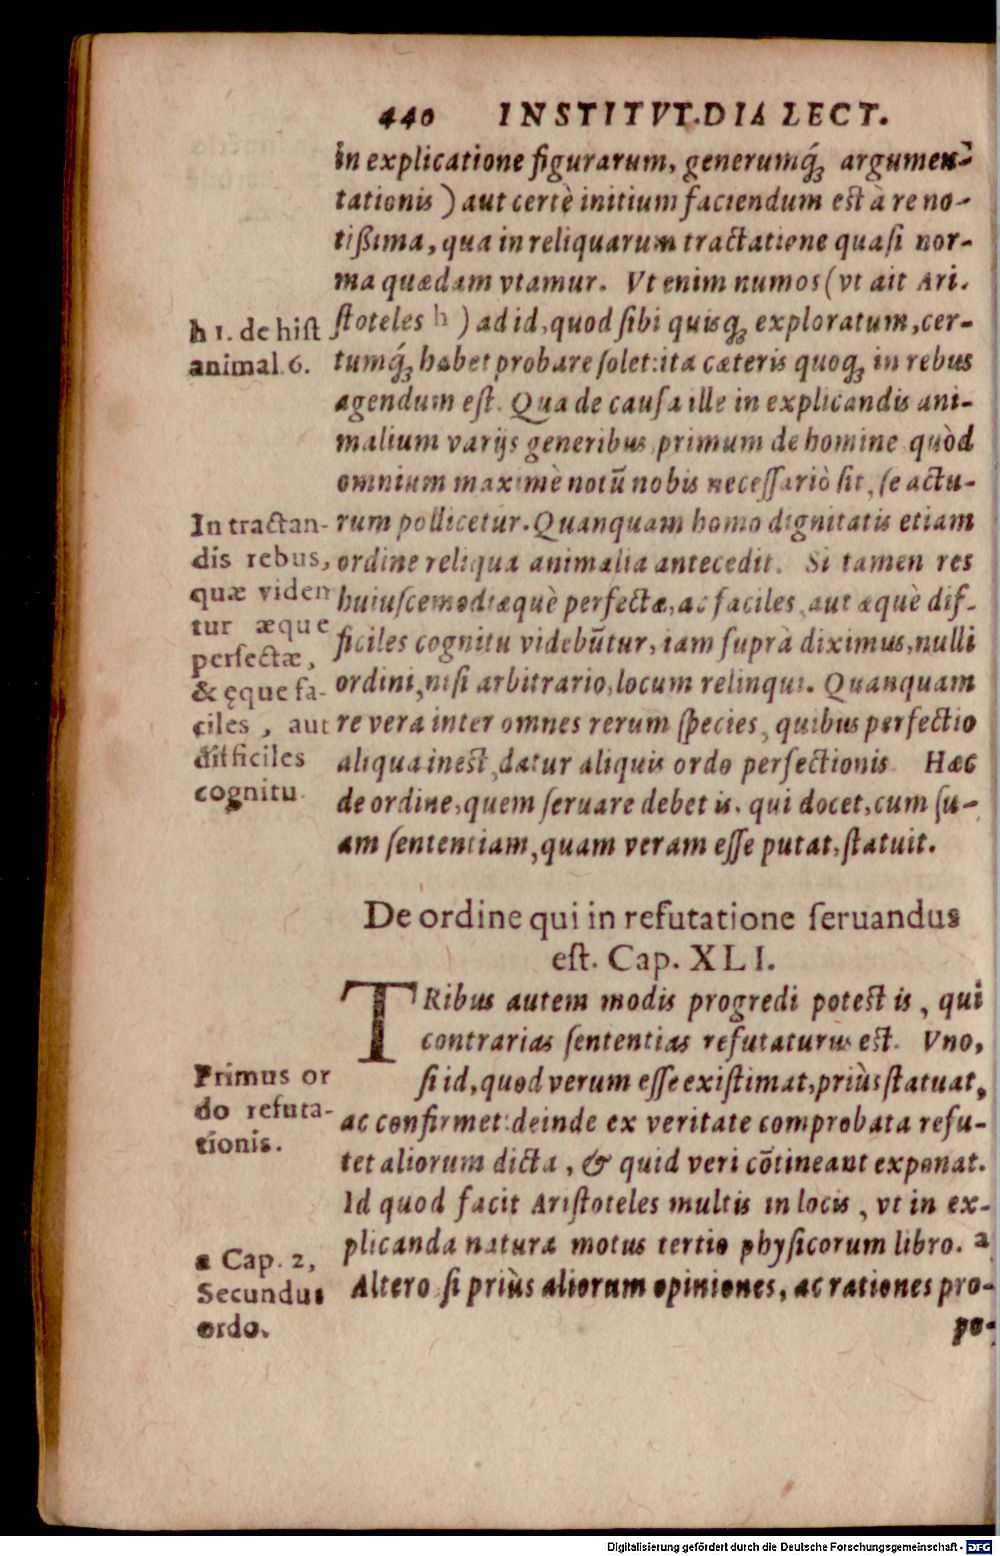 440 INSTITVT.DIALECT.
in explicatione figurarum, generumq́ꝫ argumen-
tationis) aut certè initium faciendum est à re no-
tißima, qua in reliquarum tractatione quasi nor-
ma quædam vtamur. Vt enim numos (vt ait Ari-
ſtoteles h) ad id, quod ſibi quisqꝫ exploratum, cer-
tumq́ꝫ habet probare ſolet: ita cæteris quoqꝫ in rebus
agendum eſt. Qua de cauſa ille in explicandis ani-
malium varijs generibus primum de homine quòd
omnium maximè notū nobis neceſſariò ſit, ſe actu-
rum pollicetur. Quanquam homo dignitatis etiam
ordine reliqua animalia antecedit. Si tamen res
huiuſcemodi æquè perfectæ, ac faciles, aut æquè dif-
ficiles cognitu videbūtur, iam ſuprà diximus, nulli
ordini, niſi arbitrario, locum relinqui. Quanquam
re vera inter omnes rerum ſpecies, quibus perfectio
aliqua ineſt, datur aliquis ordo perfectionis. Hæc
de ordine, quem ſeruare debet is, qui docet, cum ſu-
am ſententiam, quam veram eſſe putat, ſtatuit.
h 1. de hiſt
animal. 6.
In tractan-
dis rebus,
quæ viden
tur æque
perfectæ,
& ęque fa-
ciles, aut
difficiles
cognitu.
De ordine qui in refutatione ſeruandus
eſt. Cap. XLI.
TRibus autem modis progredi poteſt is, qui
contrarias ſententias refutaturus eſt. Vno,
ſi id, quod verum eſſe exiſtimat, priùs ſtatuat,
ac confirmet: deinde ex veritate comprobata refu-
tet aliorum dicta, & quid veri cōtineant exponat.
Id quod facit Ariſtoteles multis in locis, vt in ex-
plicanda natura motus tertio phyſicorum libro. a
Altero ſi priùs aliorum opiniones, ac rationes pro-
po-
Primus or
do refuta-
tionis.
a Cap. 2,
Secundus
ordo.
Digitalisierung gefördert durch die Deutsche Forschungsgemeinschaft - DFG